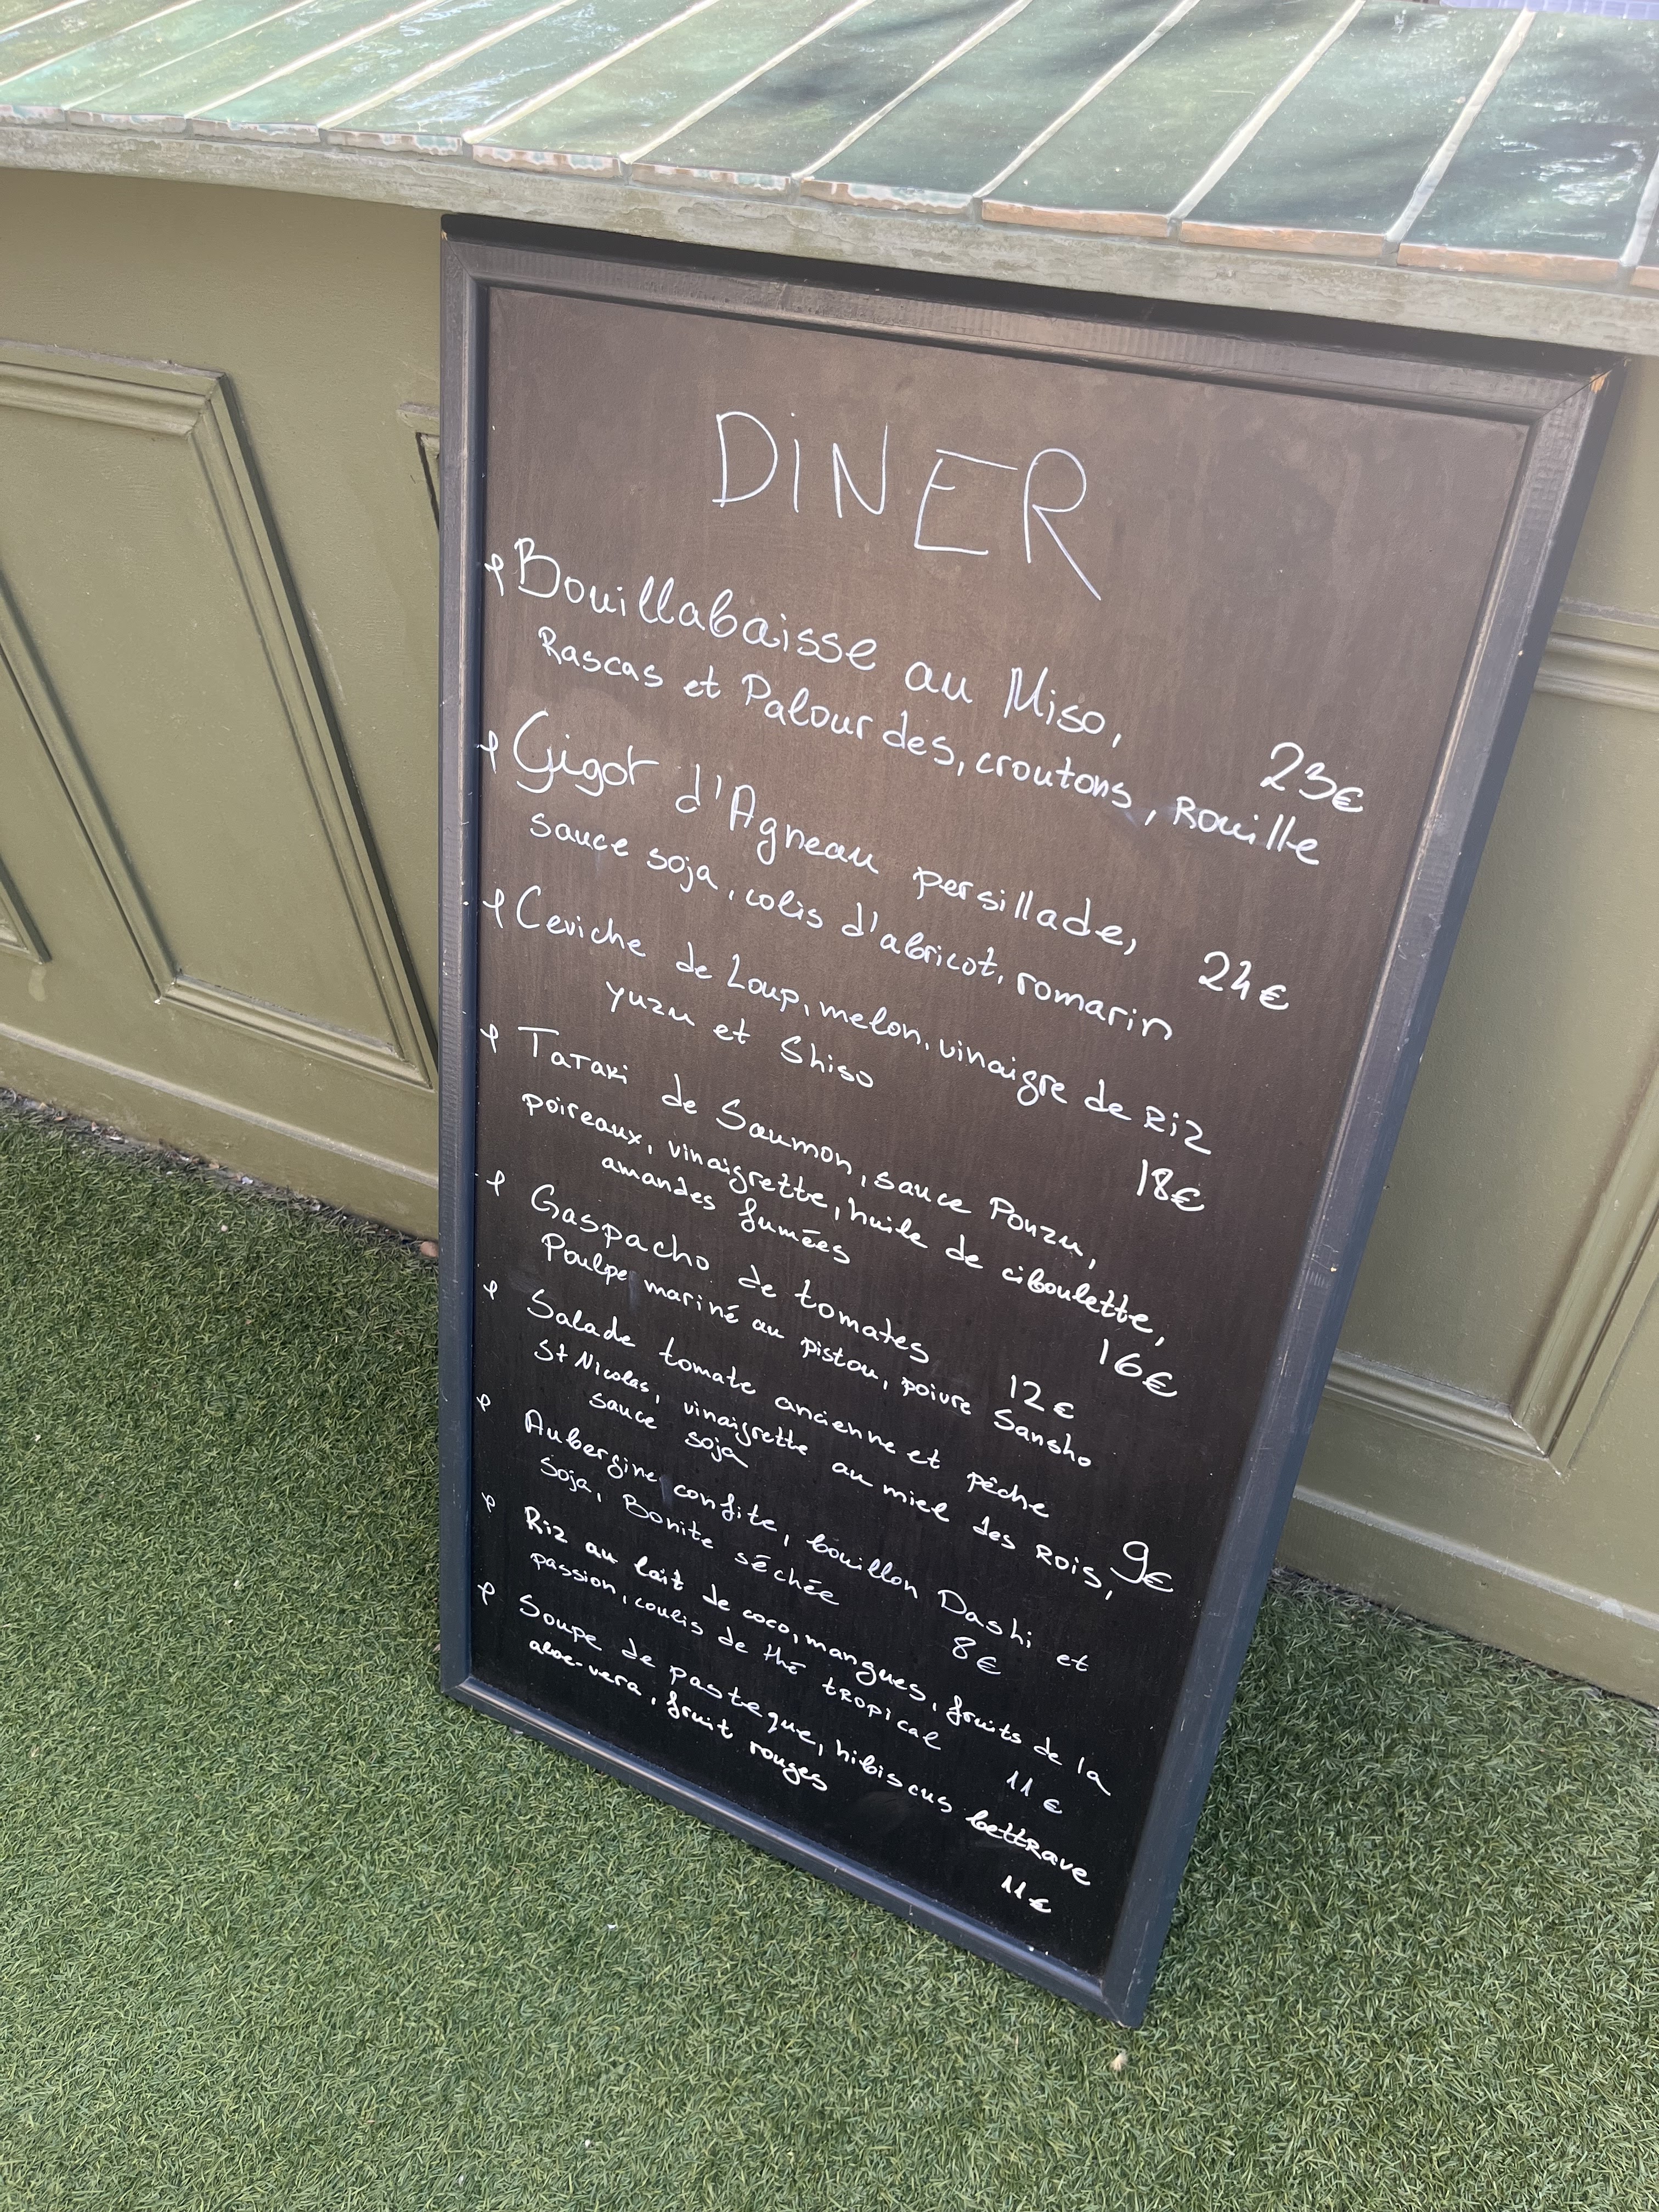 DINER
Bouillabaisse au Miso,
Rascas et Palourdes, croutons, Rouille
23€
Gigot d'Agneau persillade,
sauce soja, colis d'abricot, romarin
24€
Ceviche de Loup, melon, vinaigre de Riz
yuzu et Shiso
18€
Tataki de Saumon, sauce Ponzu,
poireaux, vinaigrette, huile de ciboulette,
amandes fumées
16€
Gaspacho de tomates
12€
Poulpe mariné au pistou, poivre Sansho
Salade tomate ancienne et pêche
St Nicolas, vinaigrette au miel des Rois,
sauce soja
9€
Aubergine confite, bouillon Dashi et
Soja, Bonite séchée
8€
Riz au lait de coco, mangues, fruits de la
passion, coulis de thé tropical
11€
Soupe de pasteque, hibiscus bettrave
aloe-vera, fruit rouges
11€